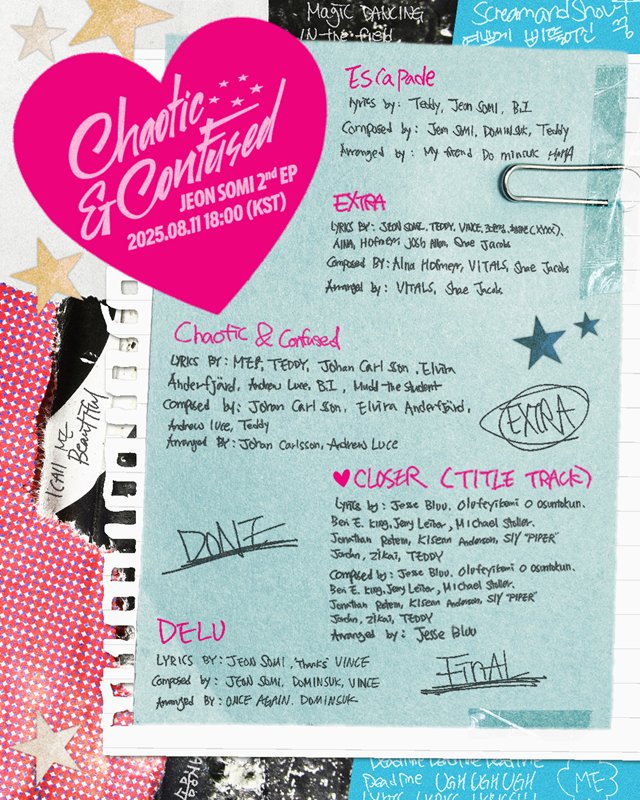 Magic DANCING
IN the field
Scream and Shout
Chaotic
& Confused
JEON SOMI 2nd EP
2025.08.11 18:00 (KST)
Escapade
lyrics by: Teddy, Jeon SOMI, B.I
Composed by: Jeon SOMI, DOMINSUK, Teddy
Arranged by: My friend Do minsuk HAHA
EXTRA
LYRICS BY: JEON SOMI, TEDDY, VINCE,
AINA, Hofmeyr, Josh Allen, Shae Jacobs
Composed BY: Aina Hofmeyr, VITALS, Shae Jacobs
Arranged by: VITALS, Shae Jacobs
Chaotic & Confused
LYRICS BY: ME!?, TEDDY, Johan Carlsson, Elvira
Anderfjärd, Andrew Luce, B.I, Mudd the student
Composed by: Johan Carlsson, Elvira Anderfjärd,
Andrew luce, Teddy
Arranged BY: Johan Carlsson, Andrew Luce
EXTRA
I CAll ME
BeautifuL
♥ CLOSER (TITLE TRACK)
Lyrics by: Jesse Bluu, Olufeyikemi O Osuntokun.
Ben E. King, Jerry Leiber, Michael Stoller.
Jonathan Rotem, Kisean Anderson, SLY "PIPER"
Jordan, Zikai, TEDDY
Composed by: Jesse Bluu, Olufeyikemi O Osuntokun.
Ben E. King, Jerry Leiber, Michael Stoller.
Jonathan Rotem, Kisean Anderson, SLY "PIPER"
Jordan, Zikai, TEDDY
Arranged by: Jesse Bluu
DONE
DELU
LYRICS BY: JEON SOMI, "Thanks" VINCE
Composed by: JEON SOMI, DOMINSUK, VINCE
Arranged BY: ONCE AGAIN. DOMINSUK
FinAL
Deadline Deadline Deadline
Deadline UGH UGH UGH
(ME)